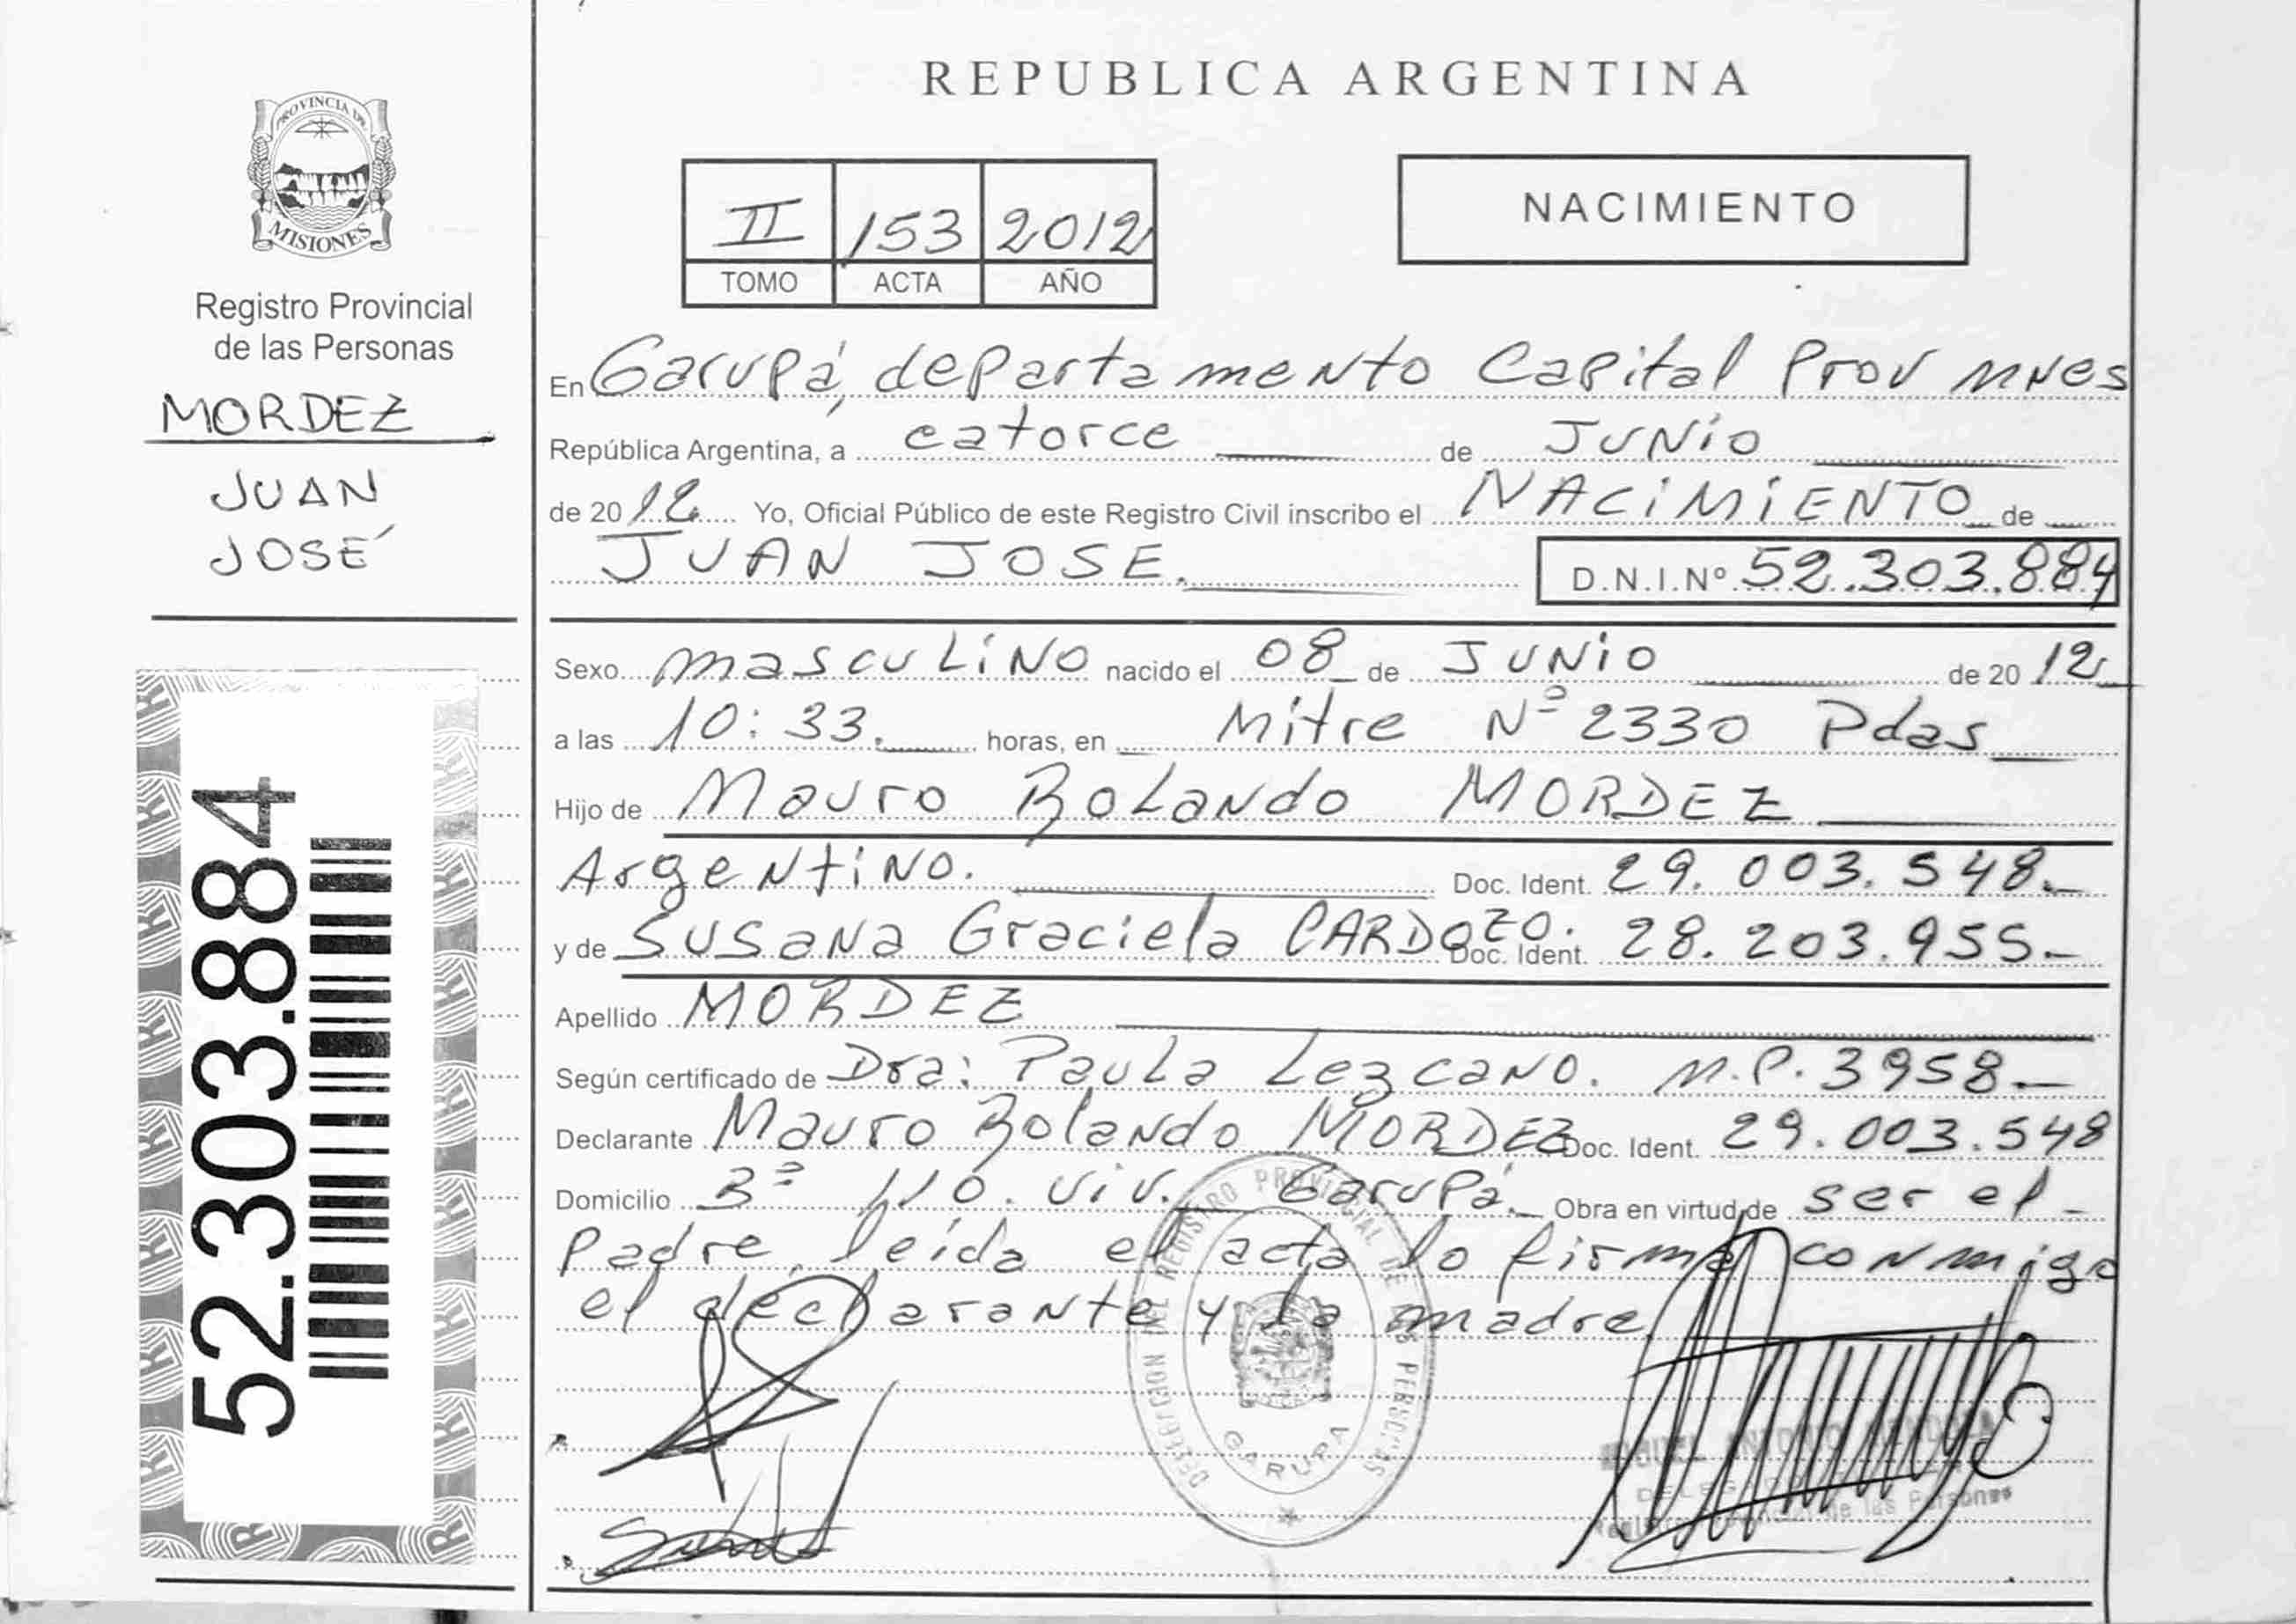 PROVINCIA DE
MISIONES
Registro Provincial
de las Personas
MORDEZ
JUAN
JOSÉ
52.303.884
REPUBLICA ARGENTINA
II 153 2012
TOMO ACTA AÑO
NACIMIENTO
En Garupá, departamento Capital Prov Mnes
República Argentina, a catorce de Junio
de 2012 Yo, Oficial Público de este Registro Civil inscribo el NACIMIENTO de
JUAN JOSE. D.N.I.Nº 52.303.884
Sexo masculino nacido el 08 de Junio de 2012
a las 10:33. horas, en Mitre Nº 2330 Pdas
Hijo de Mauro Rolando MORDEZ
Argentino. Doc. Ident. 29.003.548.-
y de Susana Graciela CARDOZO. Doc. Ident. 28.203.955.-
Apellido MORDEZ
Según certificado de Dra: Paula Lezcano. M.P. 3958.-
Declarante Mauro Rolando MORDEZ Doc. Ident. 29.003.548
Domicilio Bº 110. viv. Garupá.- Obra en virtud de ser el
Padre, leída el acta lo firma conmigo
el declarante y la madre
DELEGACION DEL REGISTRO PROVINCIAL DE LAS PERSONAS
GARUPA
ANTONIO
de las Personas